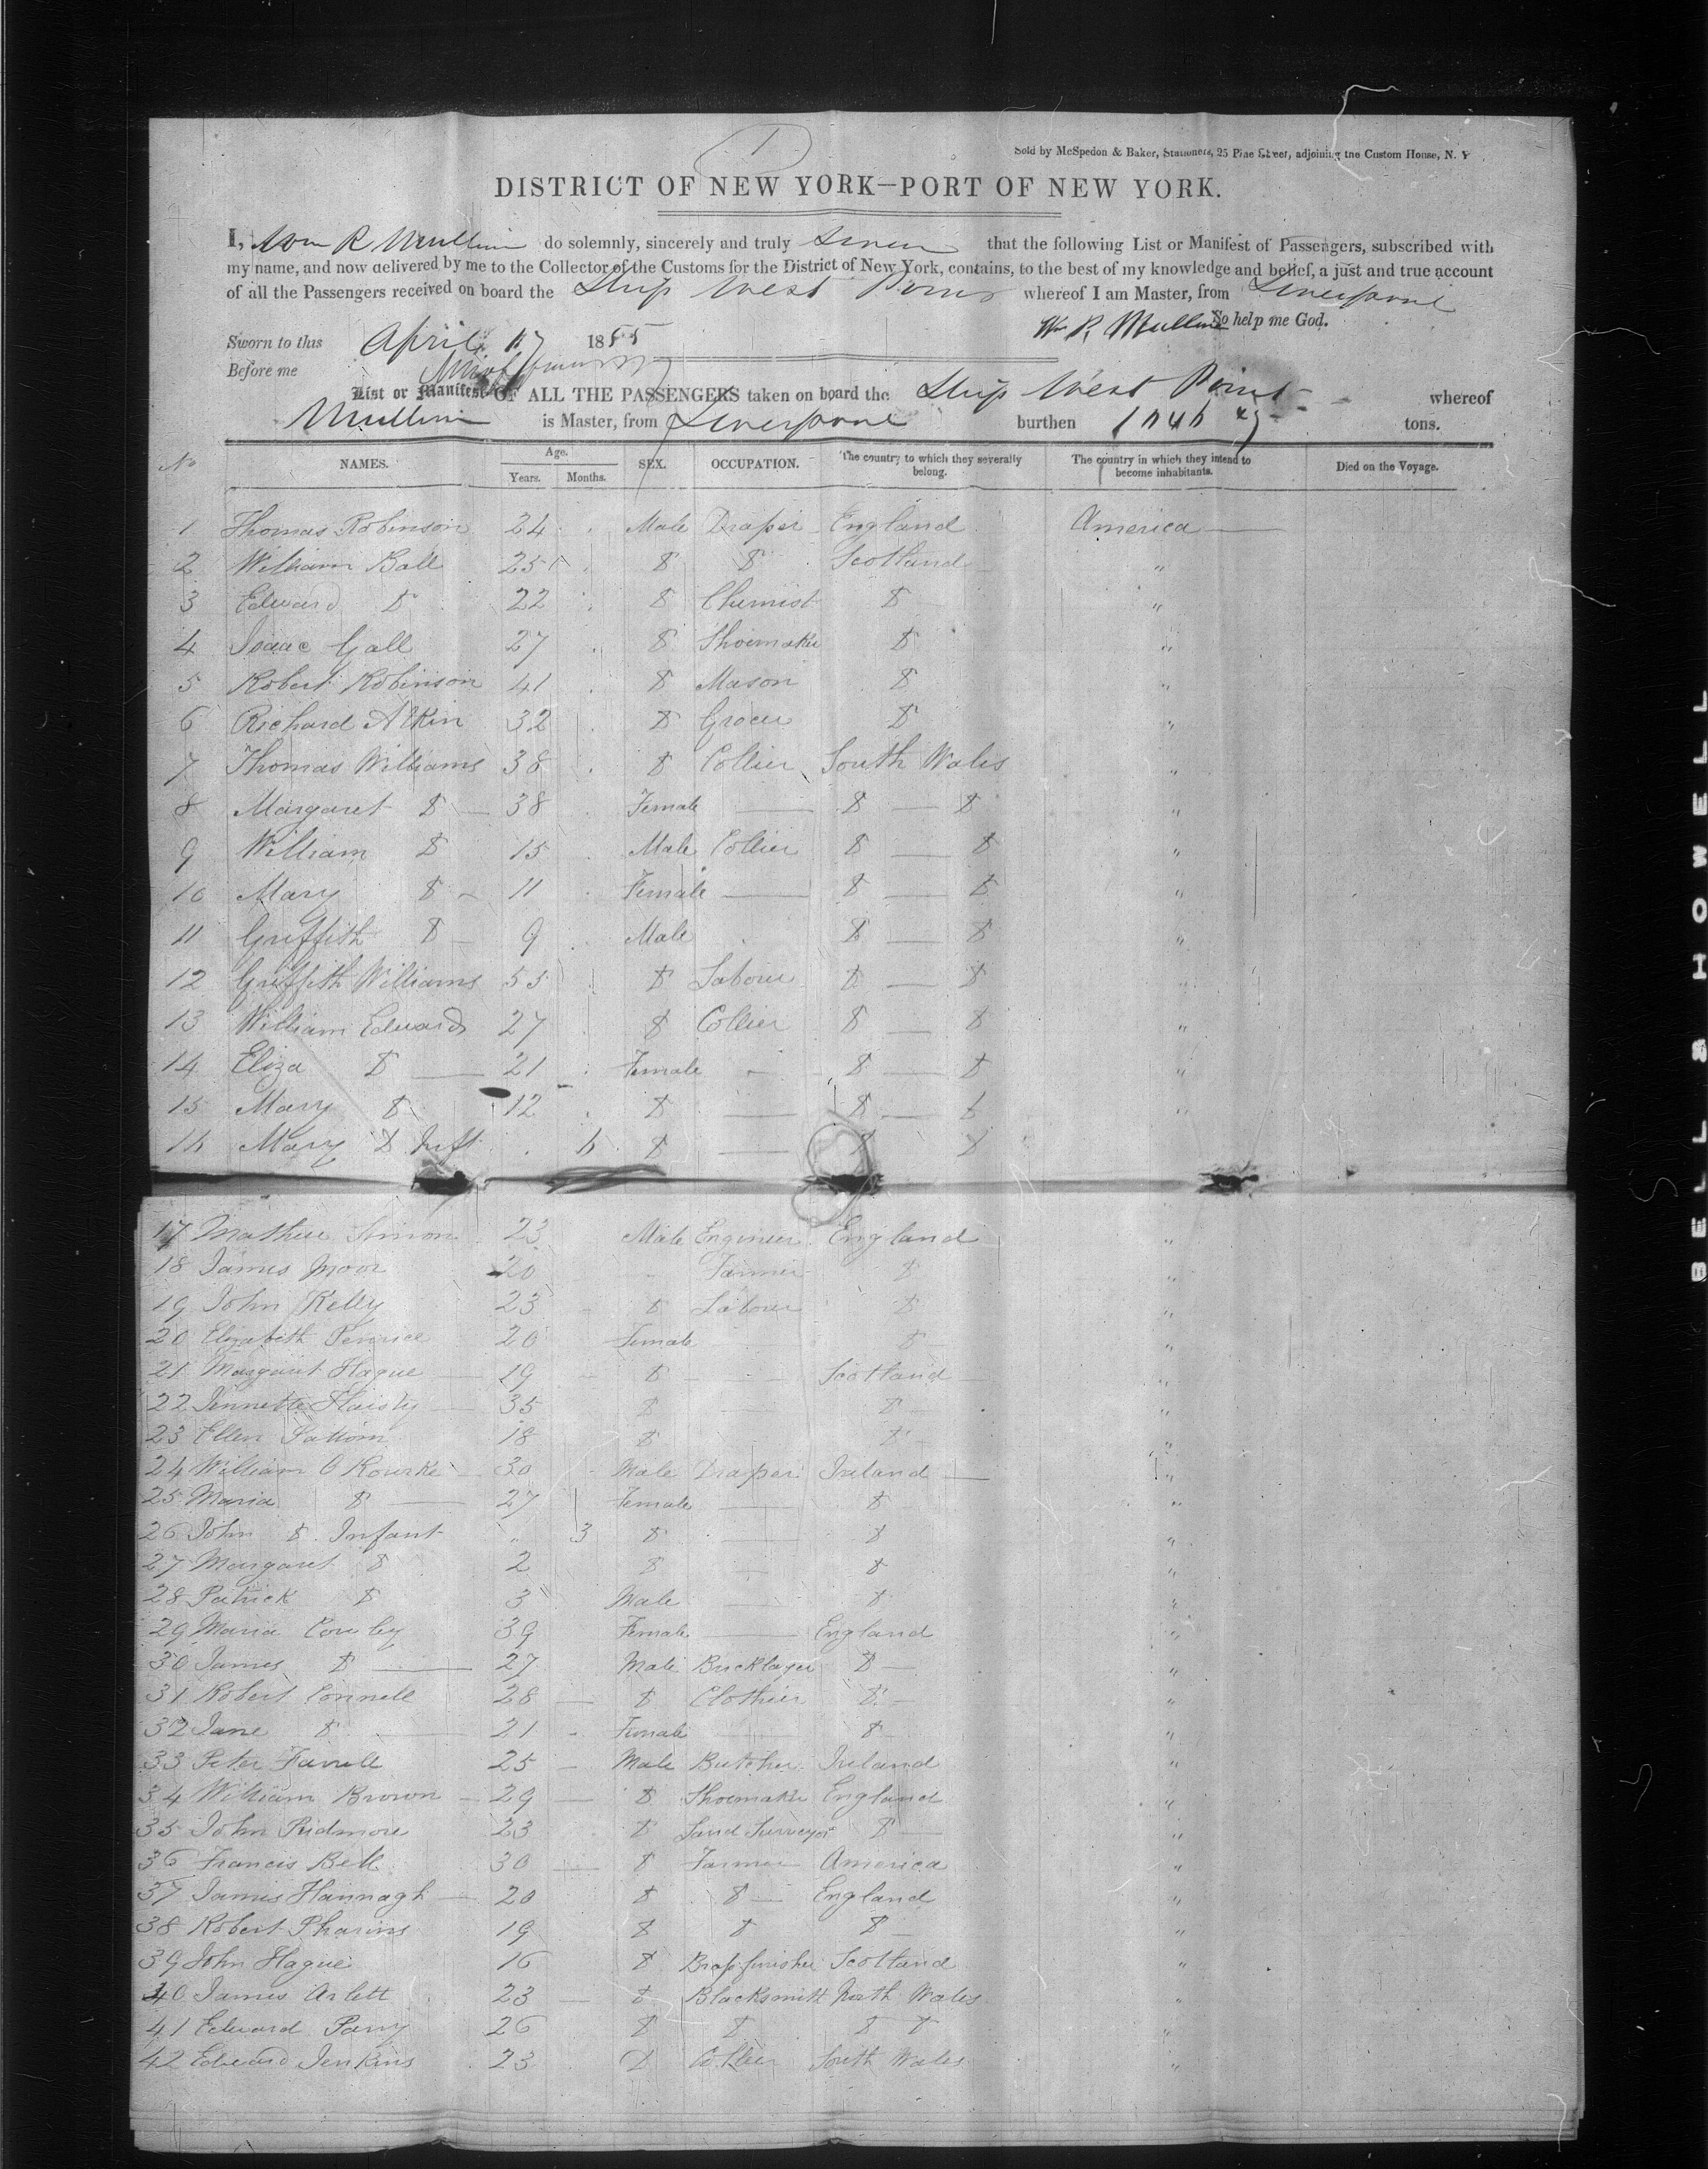 1
Sold by McSpedon & Baker, Stationers, 25 Pine Street, adjoining the Custom House, N. Y
DISTRICT OF NEW YORK—PORT OF NEW YORK.
I, Wm R Mullin do solemnly, sincerely and truly swear that the following List or Manifest of Passengers, subscribed with
my name, and now delivered by me to the Collector of the Customs for the District of New York, contains, to the best of my knowledge and belief, a just and true account
of all the Passengers received on board the Ship West Point whereof I am Master, from Liverpool
Wm R. Mullin So help me God.
Sworn to this April 17 1855
Before me
List or Manifest OF ALL THE PASSENGERS taken on board the Ship West Point whereof
Mullin is Master, from Liverpool burthen tons.
No NAMES. Age. Years. Months. SEX. OCCUPATION. The country to which they severally belong. The country in which they intend to become inhabitants. Died on the Voyage.
1 Thomas Robinson 24 Male Draper England America
2 William Ball 25 Do Do Scotland "
3 Edward Do 22 Do Chemist Do "
4 Isaac Gall 27 Do Shoemaker Do "
5 Robert Robinson 41 Do Mason Do "
6 Richard Atkin 32 Do Grocer Do "
7 Thomas Williams 38 Do Collier South Wales "
8 Margaret Do — 38 Female — Do — Do "
9 William Do 15 Male Collier Do — Do "
10 Mary Do — 11 Female — Do — Do "
11 Griffith Do — 9 Male Do — Do "
12 Griffith Williams 55 Do Labourer Do — Do "
13 William Edwards 27 Do Collier Do — Do "
14 Eliza Do — 21 Female — Do — Do "
15 Mary Do 12 Do — Do — Do "
16 Mary Do Inft 6 Do — Do Do
17 Mathew Simon 23 Male Engineer England "
18 James Moor 20 " Farmer Do "
19 John Kelly 23 Do Labour Do "
20 Elizabeth Penrice 20 Female Do "
21 Margaret Hague — 19 Do Scotland "
22 Jennette Haisty — 35 Do Do "
23 Ellen 18 Do Do "
24 William O Rourke — 30 Male Draper Ireland — "
25 Maria Do — 27 Female — Do "
26 John Do Infant " 3 Do — Do "
27 Margaret Do 2 Do — Do "
28 Patrick Do 3 Male — Do "
29 Maria Cowley 39 Female — England "
30 James Do — 27 Male Bricklayer Do — "
31 Robert Connell 28 — Do Clothier Do — "
32 Jane Do — 21 - Female — Do "
33 Peter Farrell 25 - Male Butcher Ireland "
34 William Brown — 29 — Do Shoemaker England "
35 John Ridmore 23 Do Land Surveyor Do — "
36 Francis Bell 30 — Do Farmer America "
37 James Hannagh — 20 Do Do — England "
38 Robert 19 Do Do Do — "
39 John Hague 16 Do Brassfinisher Scotland "
40 James Arlett 23 — Do Blacksmith North Wales "
41 Edward Parry 26 Do Do Do Do "
42 Edward Jenkins 23 Do Collier South Wales "
BELL & HOWELL